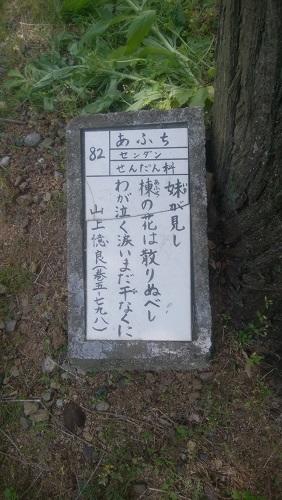 82
あふち
センダン
せんだん科
妹が見し
楝の花は散りぬべし
わが泣く涙いまだ干なくに
山上憶良(巻五-七九八)